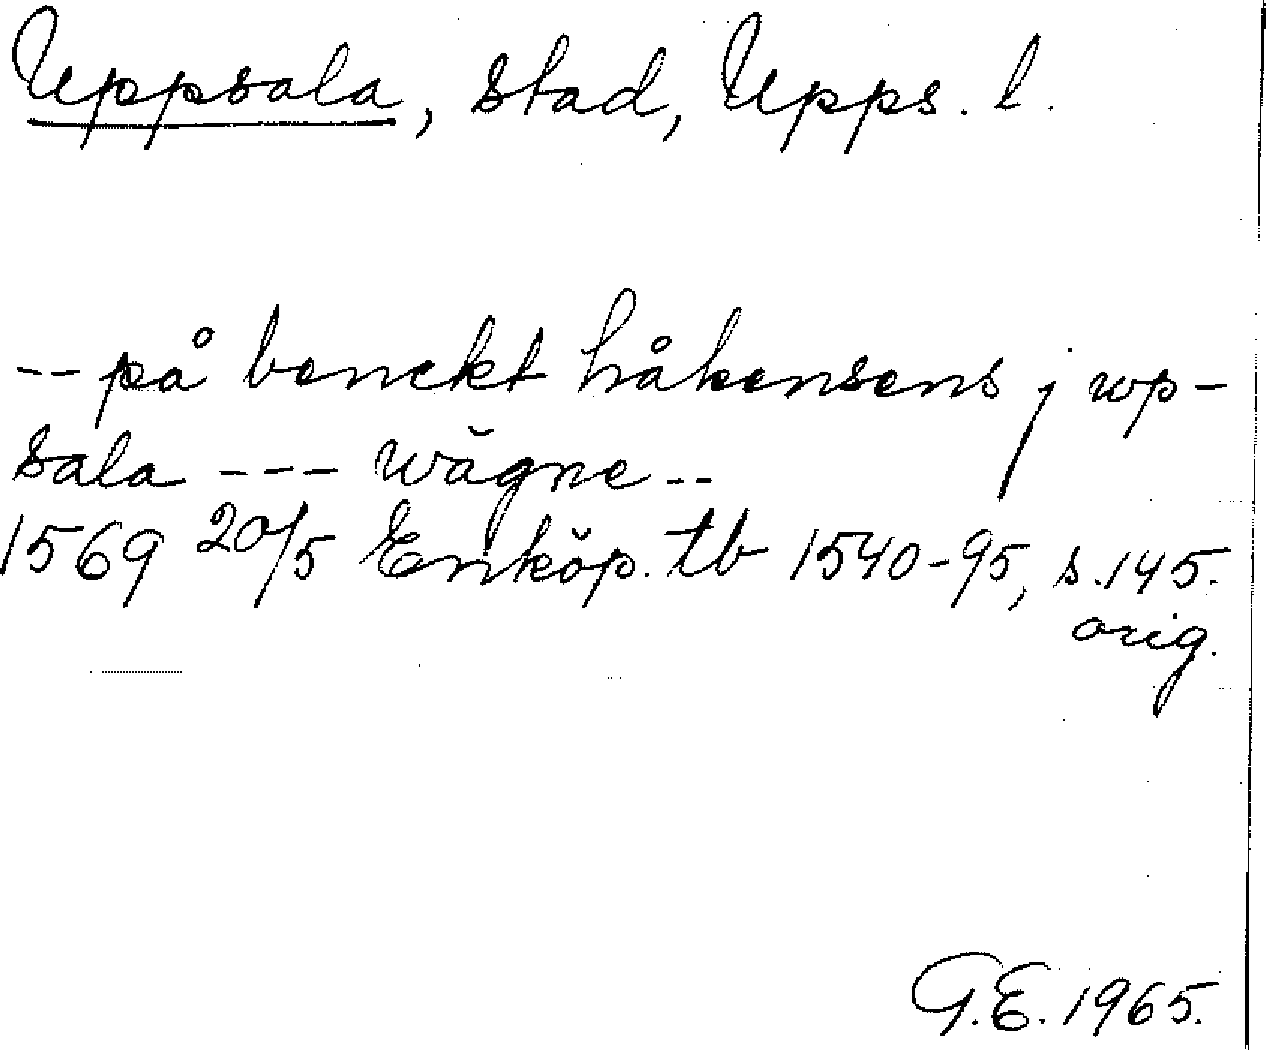 Uppsala, stad, Upps. l.
-- på benckt håkensens j wp-
sala --- wägne --
1569 20/5 Enköp. tb 1540-95, s. 145.
orig.
G.E. 1965.